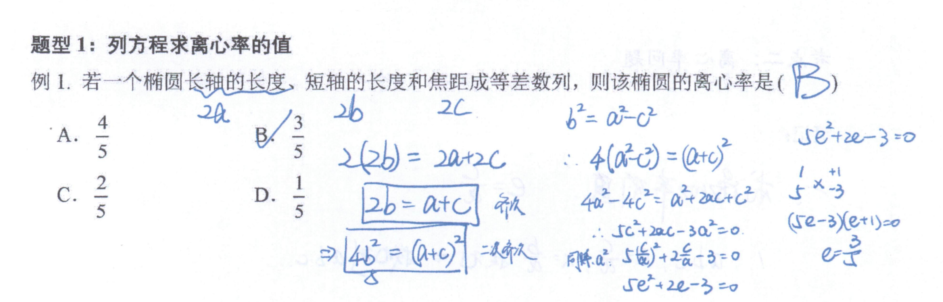 题型1：列方程求离心率的值
例 1. 若一个椭圆长轴的长度、短轴的长度和焦距成等差数列，则该椭圆的离心率是( B )
2a 2b 2c
A. 4/5 B. 3/5
C. 2/5 D. 1/5
2(2b) = 2a+2c
2b = a+c 齐次
⇒ 4b² = (a+c)² 二次齐次
b² = a²-c²
∴ 4(a²-c²) = (a+c)²
4a²-4c² = a²+2ac+c²
∴ 5c²+2ac-3a²=0.
同除a² 5(c/a)²+2c/a-3=0
5e²+2e-3=0
5e²+2e-3=0
1 +1
5 × -3
(5e-3)(e+1)=0
e=3/5